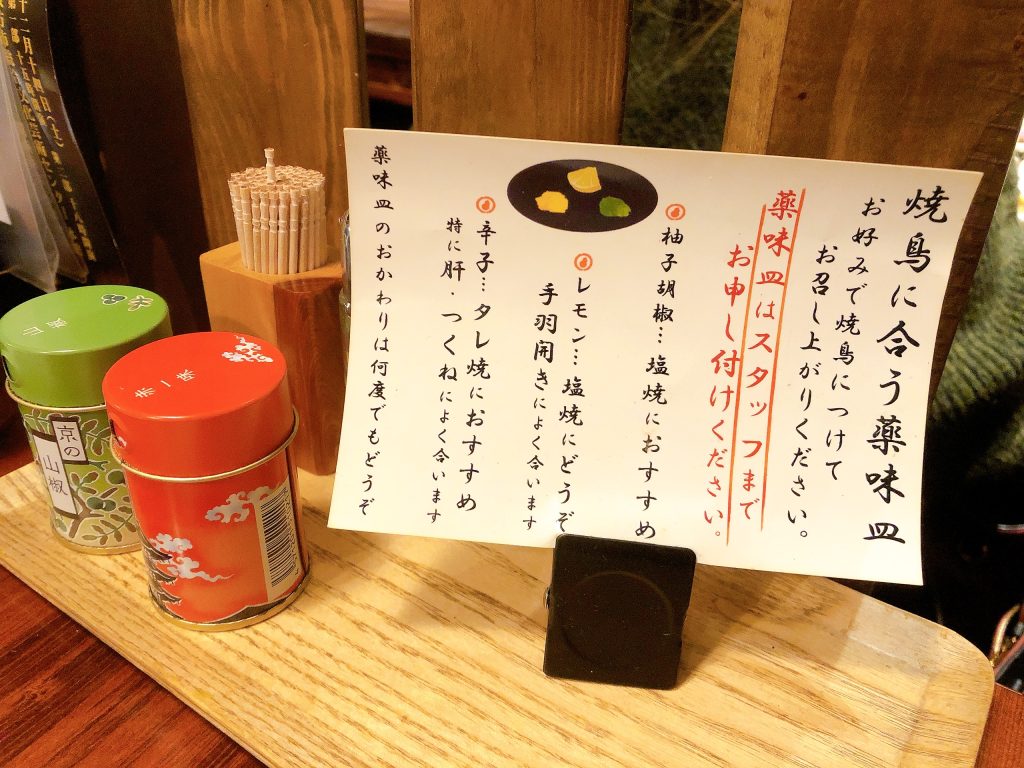 焼鳥に合う薬味皿
お好みで焼鳥につけて
お召し上がりください。
薬味皿はスタッフまで
お申し付けください。
柚子胡椒…塩焼におすすめ
レモン…塩焼にどうぞ
手羽開きによく合います
辛子…タレ焼におすすめ
特に肝・つくねによく合います
薬味皿のおかわりは何度でもどうぞ
赤一味
京の
山椒
十二月十四日